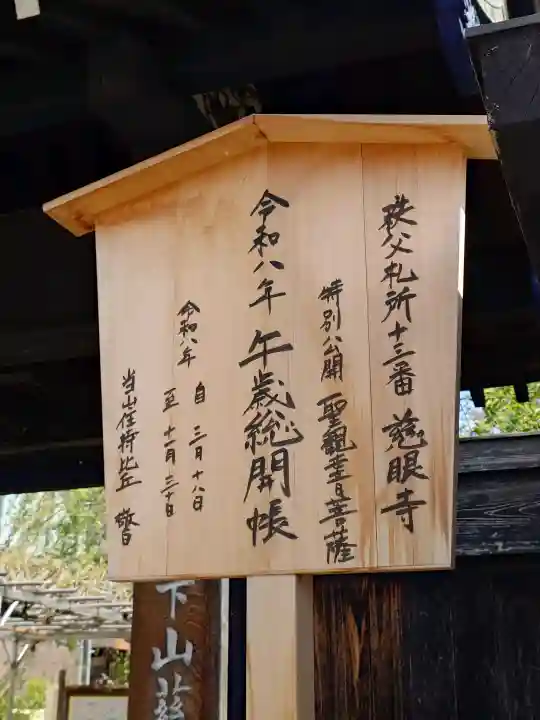 秩父札所十三番 慈眼寺
特別公開 聖観世音菩薩
令和八年 午歳総開帳
令和八年
自 三月十八日
至 十一月三十日
当山住持比丘
下山